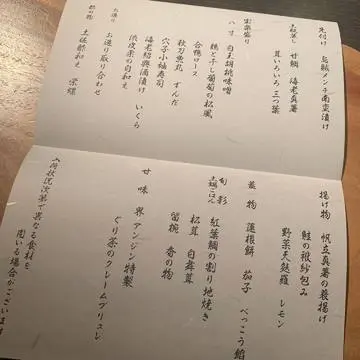 先付け　烏賊メンチ南蛮漬け
土瓶蒸し　甘鯛　海老真薯
茸いろいろ 三つ葉
お楽盛り
八寸　白和え胡桃味噌
鶏と干し葡萄の松風
合鴨ロース
秋刀魚丸　ずんだ
穴子小袖寿司
海老紹興酒漬け　いくら
法蓮菜の白和え
お造り　お造り取り合わせ
酢の物　土佐酢和え　栄螺
揚げ物　帆立真薯の霰揚げ
鮭の袱紗包み
野菜天麩羅　レモン
蓋物　蓮根餅　茄子　べっこう餡
旬彩　紅葉鯛の割り地焼き
土鍋ごはん　松茸　白舞茸
留椀　香の物
甘味　界アンジン特製
ぐり茶のクレームブリュレ
入荷状況次第で異なる食材を
用いる場合がございます